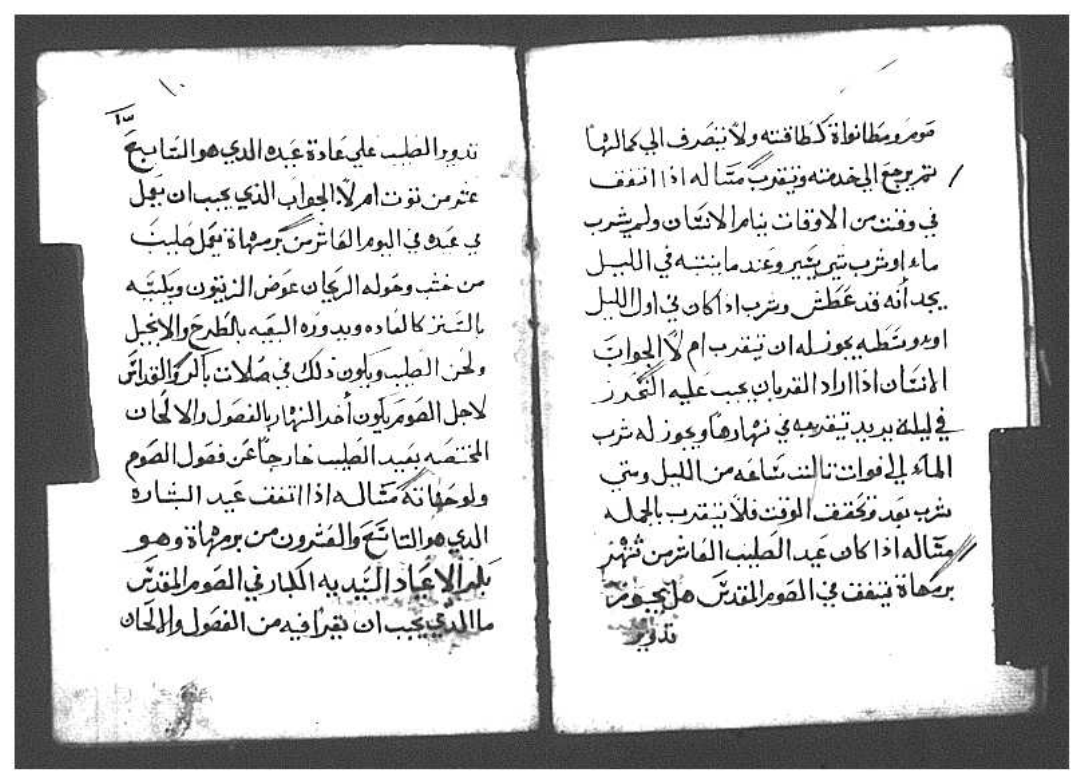 صوم ومطانواة كطاقته ولا ينصرف الي كمالها
ثم يرجع الي خدمته ويتقرب مساله اذا اتفق
في وقت من الاوقات ينام الانسان ولم يشرب
ماء او شرب شي يسير وعند ما ينتبه في الليل
يجد أنه قد عطش وشرب اذا كان في اول الليل
او وسطه يجوز له ان يتقرب ام لا الجواب
الانسان اذا اراد القربان يجب عليه التحرز
في ليلة يريد يتقرب في نهارها ويجوز له شرب
الماء الي فوات ثالث ساعه من الليل ومتي
شرب بعد وتحقق الوقت فلا يتقرب بالجمله
مساله اذا كان عيد الصليب العاشر من شهر
برمهاة يتفق في الصوم المقدس هل يجوز
تدوير
١٠
تدوير الصليب علي عادة عيده الدي هو السابع
عشر من توت ام لا الجواب الذي يجب ان يعمل
في عيده في اليوم العاشر من برمهاة يعمل صليب
من خشب وحوله الريحان عوض الزيتون ويلبسه
بالستر كالعاده ويدوره البيعه بالطرح والانجيل
ولحن الصليب ويكون ذلك في صلات باكر والقداس
لاجل الصوم يكون أخر النهار بالفصول والالحان
المختصه بعيد الصليب خارجاً عن فصول الصوم
ولوحداته مساله اذا اتفق عيد البشاره
الدي هو التاسع والعشرون من برمهاة وهو
الاعياد السيديه الكبار في الصوم المقدس
ما الذي يجب ان يقرا فيه من الفصول والالحان